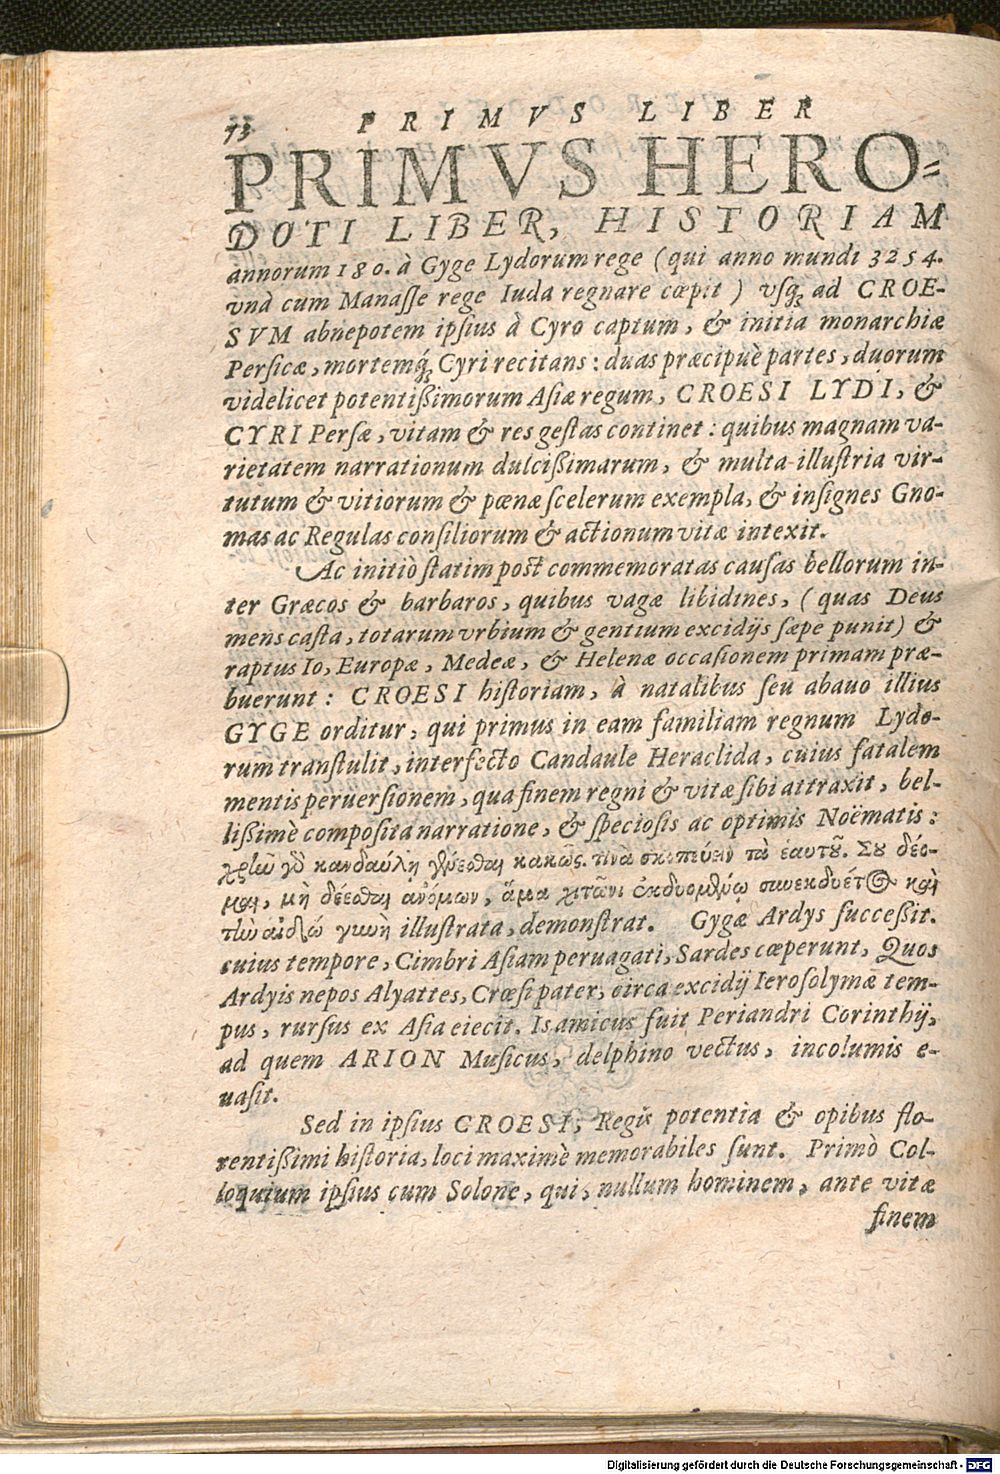 73 PRIMVS LIBER
PRIMVS HERO=
DOTI LIBER, HISTORIAM
annorum 180. à Gyge Lydorum rege (qui anno mundi 3254.
vnà cum Manaſſe rege Iuda regnare cœpit) vſq; ad CROE-
SVM abnepotem ipſius à Cyro captum, & initia monarchiæ
Perſicæ, mortemq́; Cyri recitans: duas præcipuè partes, duorum
videlicet potentißimorum Aſiæ regum, CROESI LYDI, &
CYRI Perſæ, vitam & res geſtas continet: quibus magnam va-
rietatem narrationum dulcißimarum, & multa illuſtria vir-
tutum & vitiorum & pœnæ ſcelerum exempla, & inſignes Gno-
mas ac Regulas conſiliorum & actionum vitæ intexit.
Ac initiò ſtatim poſt commemoratas cauſas bellorum in-
ter Græcos & barbaros, quibus vagæ libidines, (quas Deus
mens caſta, totarum vrbium & gentium excidijs ſæpe punit) &
raptus Io, Europæ, Medeæ, & Helenæ occaſionem primam præ-
buerunt: CROESI hiſtoriam, à natalibus ſeu abauo illius
GYGE orditur, qui primus in eam familiam regnum Lydo-
rum tranſtulit, interfecto Candaule Heraclida, cuius fatalem
mentis peruerſionem, qua finem regni & vitæ ſibi attraxit, bel-
lißimè compoſita narratione, & ſpecioſis ac optimis Noëmatis:
χρῆν γὸ κανδαύλῃ γενέσθαι κακῶς. τινὰ σκοπέειν τὰ ἑαυτοῦ. Σοῦ δέο-
μαι, μὴ δέεσθαι ἀνόμων, ἅμα χιτῶνι ἐκδυομένῳ συνεκδυέται καὶ
τὴν αἰδῶ γυνὴ illuſtrata, demonſtrat. Gygæ Ardys ſucceßit.
cuius tempore, Cimbri Aſiam peruagati, Sardes cœperunt, Quos
Ardyis nepos Alyattes, Crœſi pater, circa excidij Ieroſolymæ tem-
pus, rurſus ex Aſia eiecit. Is amicus fuit Periandri Corinthij,
ad quem ARION Muſicus, delphino vectus, incolumis e-
uaſit.
Sed in ipſius CROESI, Regis potentia & opibus flo-
rentißimi hiſtoria, loci maximè memorabiles ſunt. Primò Col-
loquium ipſius cum Solone, qui, nullum hominem, ante vitæ
finem
Digitalisierung gefördert durch die Deutsche Forschungsgemeinschaft - DFG